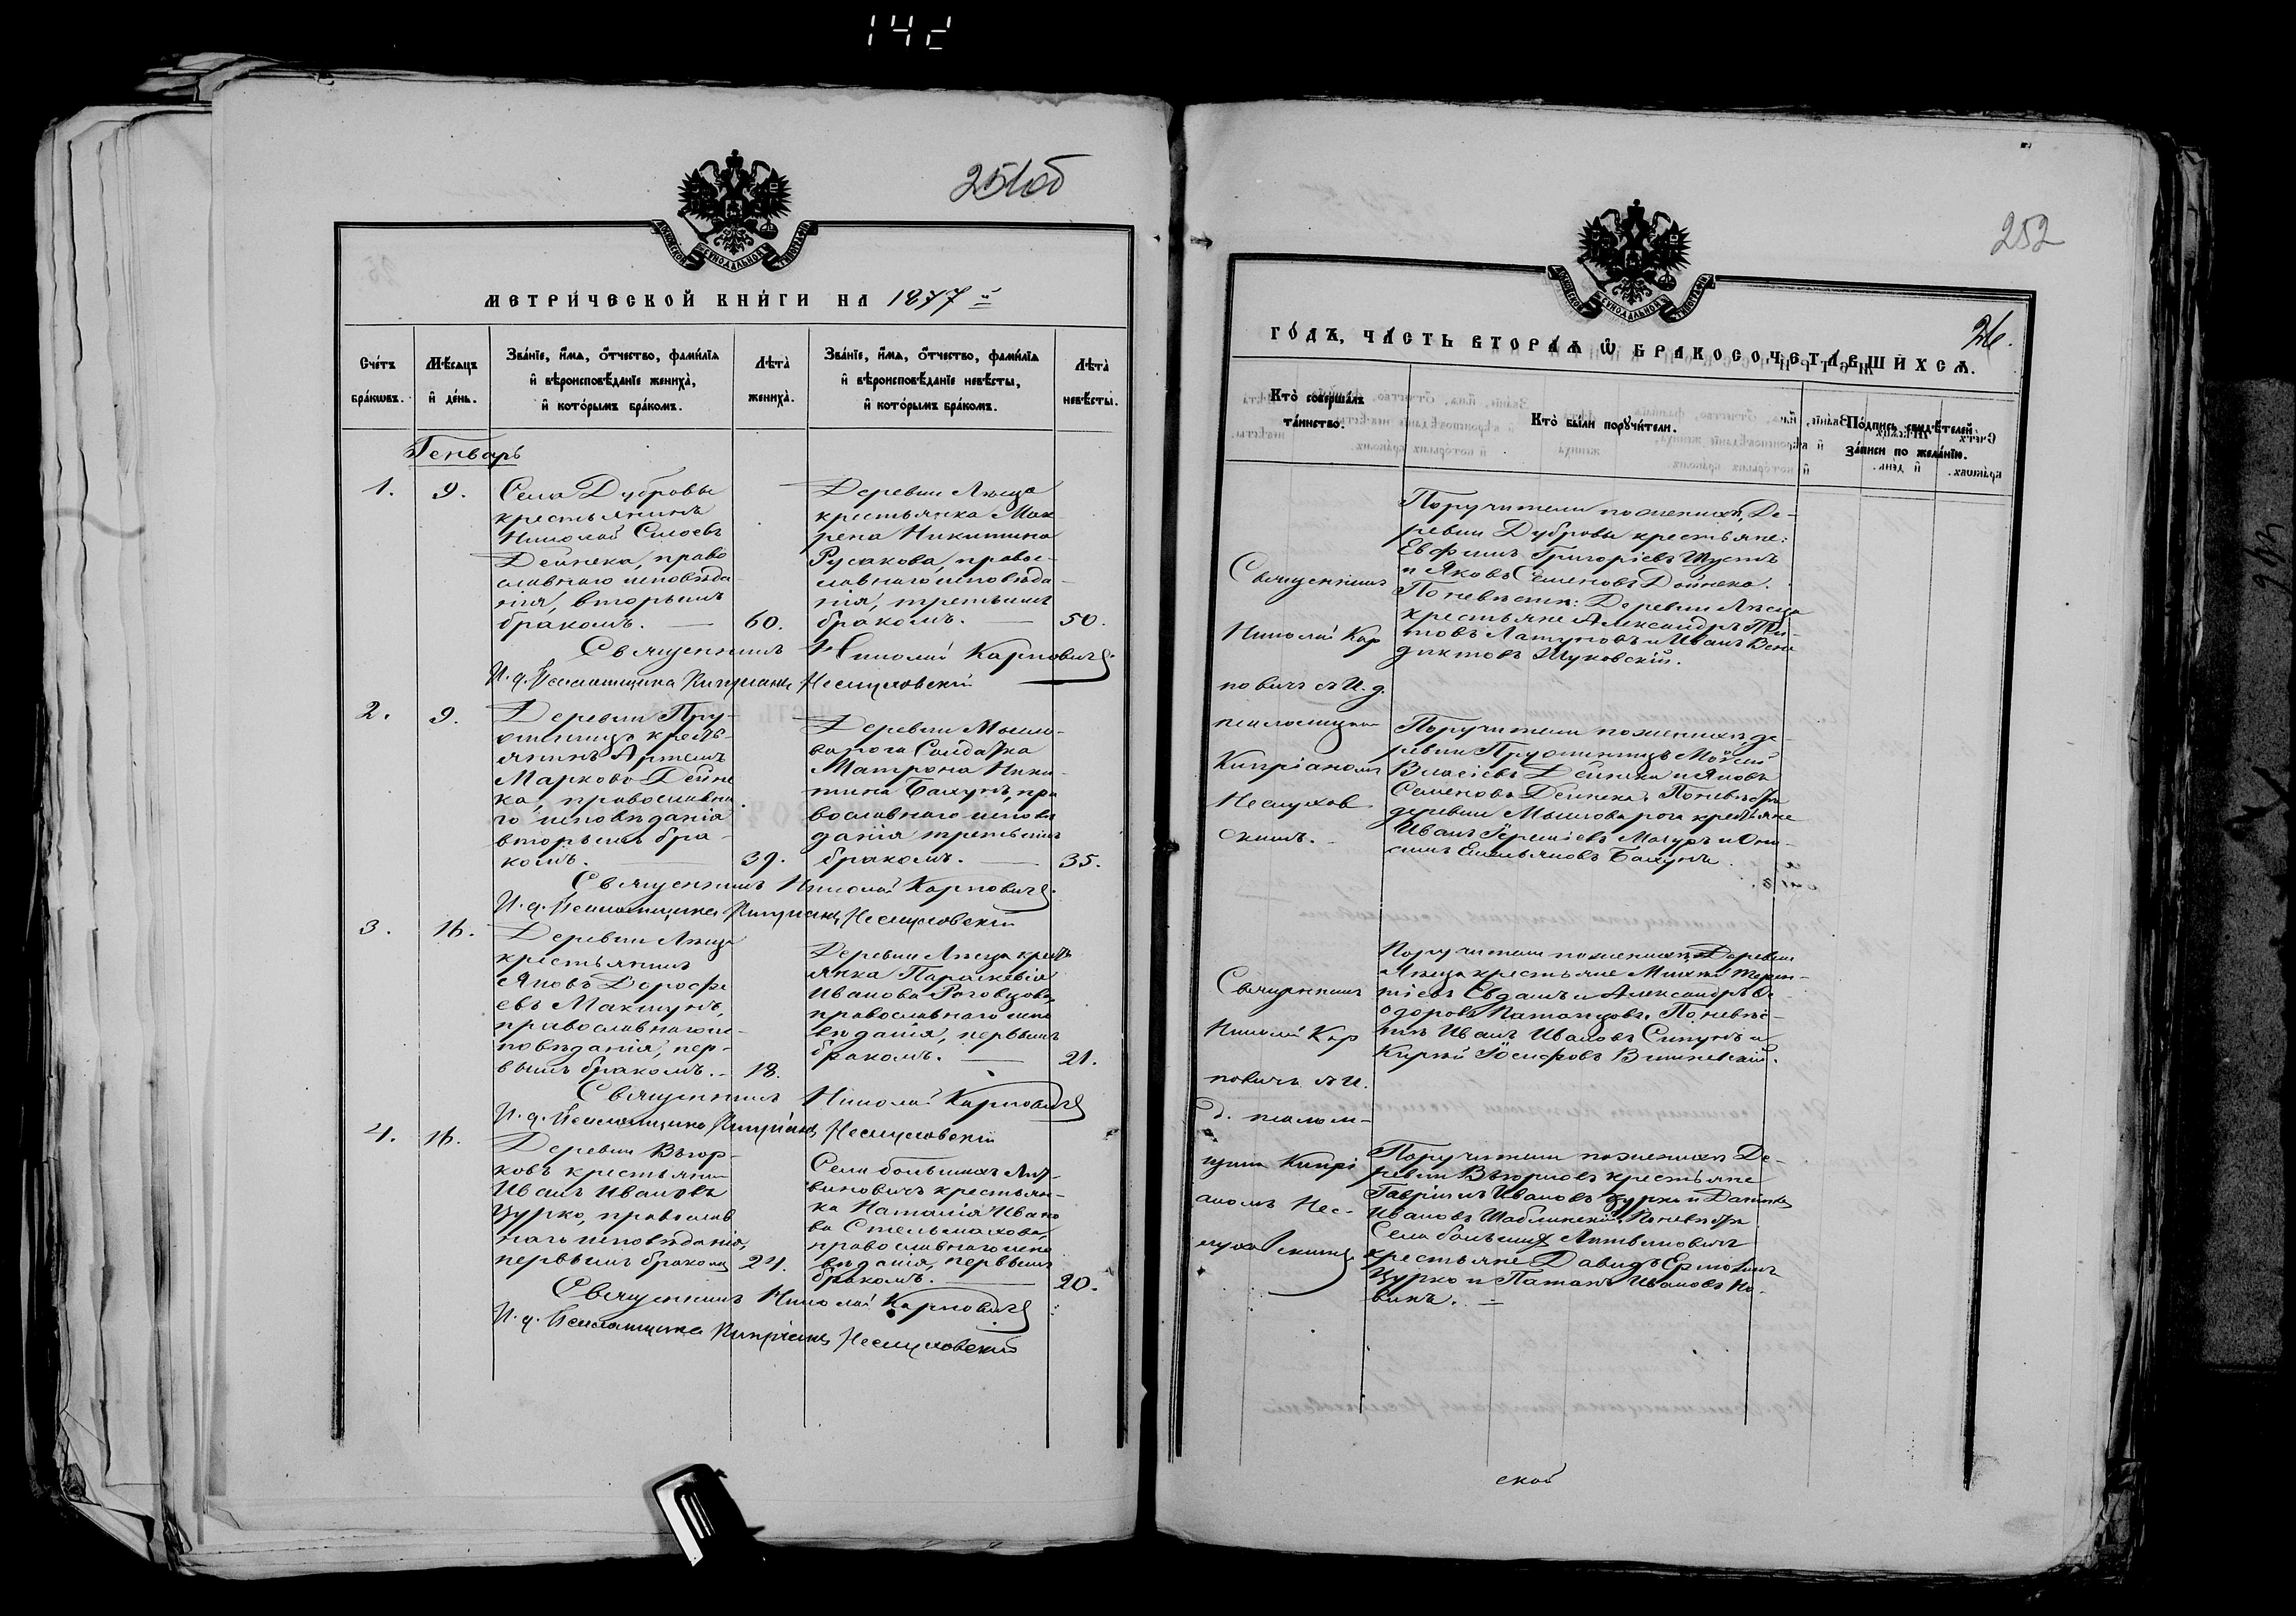 142
251об
МОСКОВСКОЙ СѴНОДАЛЬНОЙ ТИПОГРАФІИ
МЕТРИ́ЧЕСКОЙ КНИ́ГИ НА 1877 й
Сче́тъ бра́кѡвъ.
Мѣ́сяцъ и҆ де́нь.
Зва́нїе, и҆́мѧ, ѻ҆́тчество, фами́лїѧ и҆ вѣроисповѣ́данїе жениха̀, и҆ кото́рымъ бра́комъ.
Лѣ́та̀ жениха̀.
Зва́нїе, и҆́мѧ, ѻ҆́тчество, фами́лїѧ и҆ вѣроисповѣ́данїе невѣ́сты, и҆ кото́рымъ бра́комъ.
Лѣ́та̀ невѣ́сты.
Генварь
1. 9.
Села Дубровы
крестьянинъ
Николай Сисоевъ
Дейнека, право
славнаго исповѣда
нія, вторымъ
бракомъ. — 60.
Деревни Лъща
крестьянка Мак
рена Никитина
Русакова, правос-
лавнаго исповѣда-
нія, третьимъ
бракомъ. — 50.
Священникъ Николай Карповичъ.
И. д. Псаломщика Кипріанъ Неслуховскій
2. 9.
Деревни Пру-
крест-
янинъ Артемъ
Марковъ Дейне
ка, православна
го исповѣданія
вторымъ бра-
комъ. — 39.
Деревни Мысло-
варога Солдатка
Матрона Ники-
тина Бахунъ, пра
вославнаго исповѣ
данія третьимъ
бракомъ. — 35.
Священникъ Николай Карповичъ.
И. д. Псаломщика Кипріанъ Неслуховскій
3. 16.
Деревни Лъща
крестьянинъ
Яковъ Дорофе
евъ Макшунъ,
православнаго ис-
повѣданія, пер-
вымъ бракомъ. - 18.
Деревни Лъща крест
янка Параскевія
Иванова Роговцова
православнаго испо
вѣданія, первымъ
бракомъ. — 21.
Священникъ Николай Карповичъ
И. д. Псаломщика Кипріанъ Неслуховскій
4. 16.
Деревни
крестьянин
Иванъ Ивановъ
Цурко, православ
наго исповѣданія,
первымъ бракомъ 24.
Села большихъ Лит-
виновичъ крестьян-
ка Наталія Ивано
ва Стельмахова,
православнаго испо
вѣданія, первымъ
бракомъ. — 20.
Священникъ Николай Карповичъ
И. д. Псаломщика Кипріанъ Неслуховскій
252
МОСКОВСКОЙ СѴНОДАЛЬНОЙ ТИПОГРАФІИ
26.
ГО́ДЪ, ЧА́СТЬ ВТОРА́Ѧ Ѡ҆ БРАКОСОЧЕТА́ВШИХСѦ.
Кто̀ соверша́лъ та́инство.
Кто̀ бы́ли порꙋчи́тели.
По́дпись свидѣ́телей за́писи по жела́нїю.
Священникъ
Николай Кар
повичъ съ И. д.
псаломщика
Кипріаномъ
Неслухов
скимъ.
Поручители по женихѣ, Де-
ревни Дубровы крестьяне:
Евфимъ Григоріевъ Шустъ
и Яковъ Семеновъ Дойнека.
По невѣстѣ: Деревни Лъща
крестьяне Александръ
Латуновъ и Иванъ Вене
диктовъ Жуковскій.
Поручители по женихѣ де-
ревни Моисей
Власіевъ Дейнека и Яковъ
Семеновъ Дейнека. По невѣстѣ
деревни Мысловарога крестьяне
Иванъ Мазуръ и Они-
симъ Емельяновъ Бахунъ.
Священникъ
Николай Кар
повичъ съ И.
д. псалом-
щика Кипрі
аномъ Нес-
луховскимъ
Поручители по женихѣ Деревни
Лъща крестьяне
Евдамъ и Александръ Ѳе-
одоровъ По невѣс-
тѣ Иванъ Ивановъ и
Осифовъ Вишневскій.
Поручители по женихѣ Де-
ревни крестьяне
Гавріилъ Ивановъ Цурко и Даніилъ
Ивановъ Шаблинскій. По невѣстѣ
Села большихъ Литвиновичъ
крестьяне Давидъ
Цурко и Ивановъ Но-
викъ. —
ской